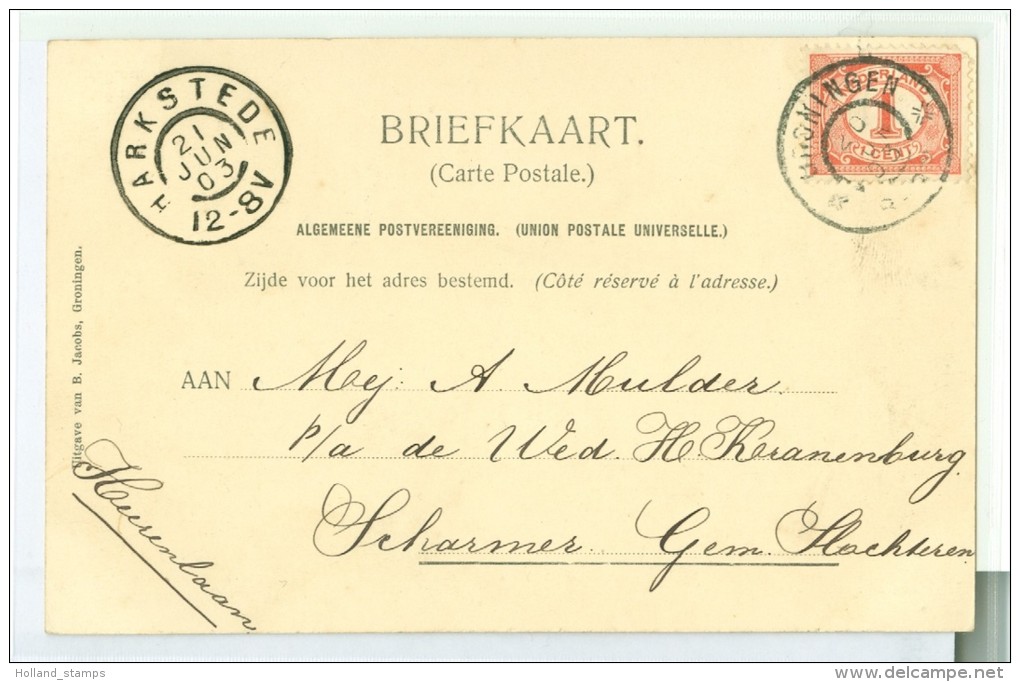 HARKSTEDE
21
JUN
03
12-8V
GRONINGEN
NEDERLAND
1
CENT
BRIEFKAART.
(Carte Postale.)
ALGEMEENE POSTVEREENIGING. (UNION POSTALE UNIVERSELLE.)
Zijde voor het adres bestemd. (Côté réservé à l'adresse.)
Uitgave van B. Jacobs, Groningen.
AAN Mej. A Mulder
p/a de Wed. H. Kranenburg
Scharmer. Gem. Slochteren
Heerenlaan
Holland_stamps
www.delcampe.net